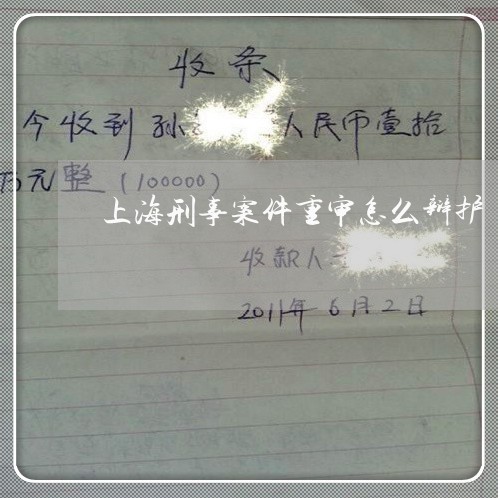 收条
今收到孙 人民币壹拾
万元整(100000)
上海刑事案件重审怎么辩护
收款人
2011年6月2日